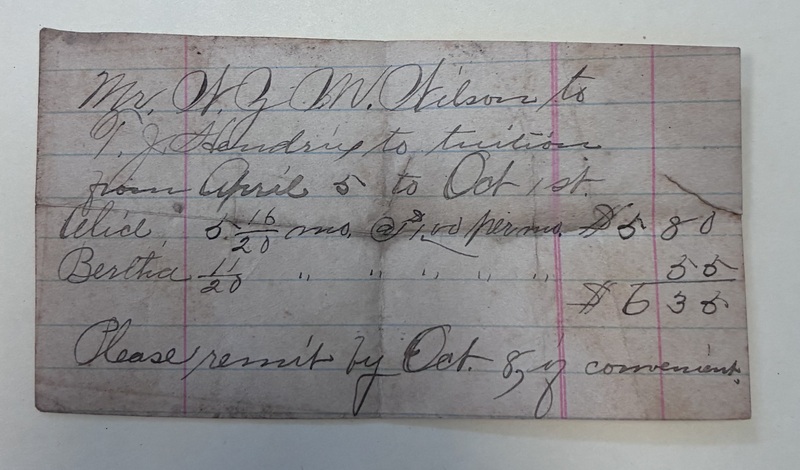 Mr. W. Z. M. Wilson to
T. J. Hendrix to tuition
from April 5 to Oct 1st.
Alice, 5 16/20 mo. @ $1.00 per mo. $ 5 80
Bertha 11/20 " " " " " 55
$ 6 35
Please remit by Oct. 8, if convenient.